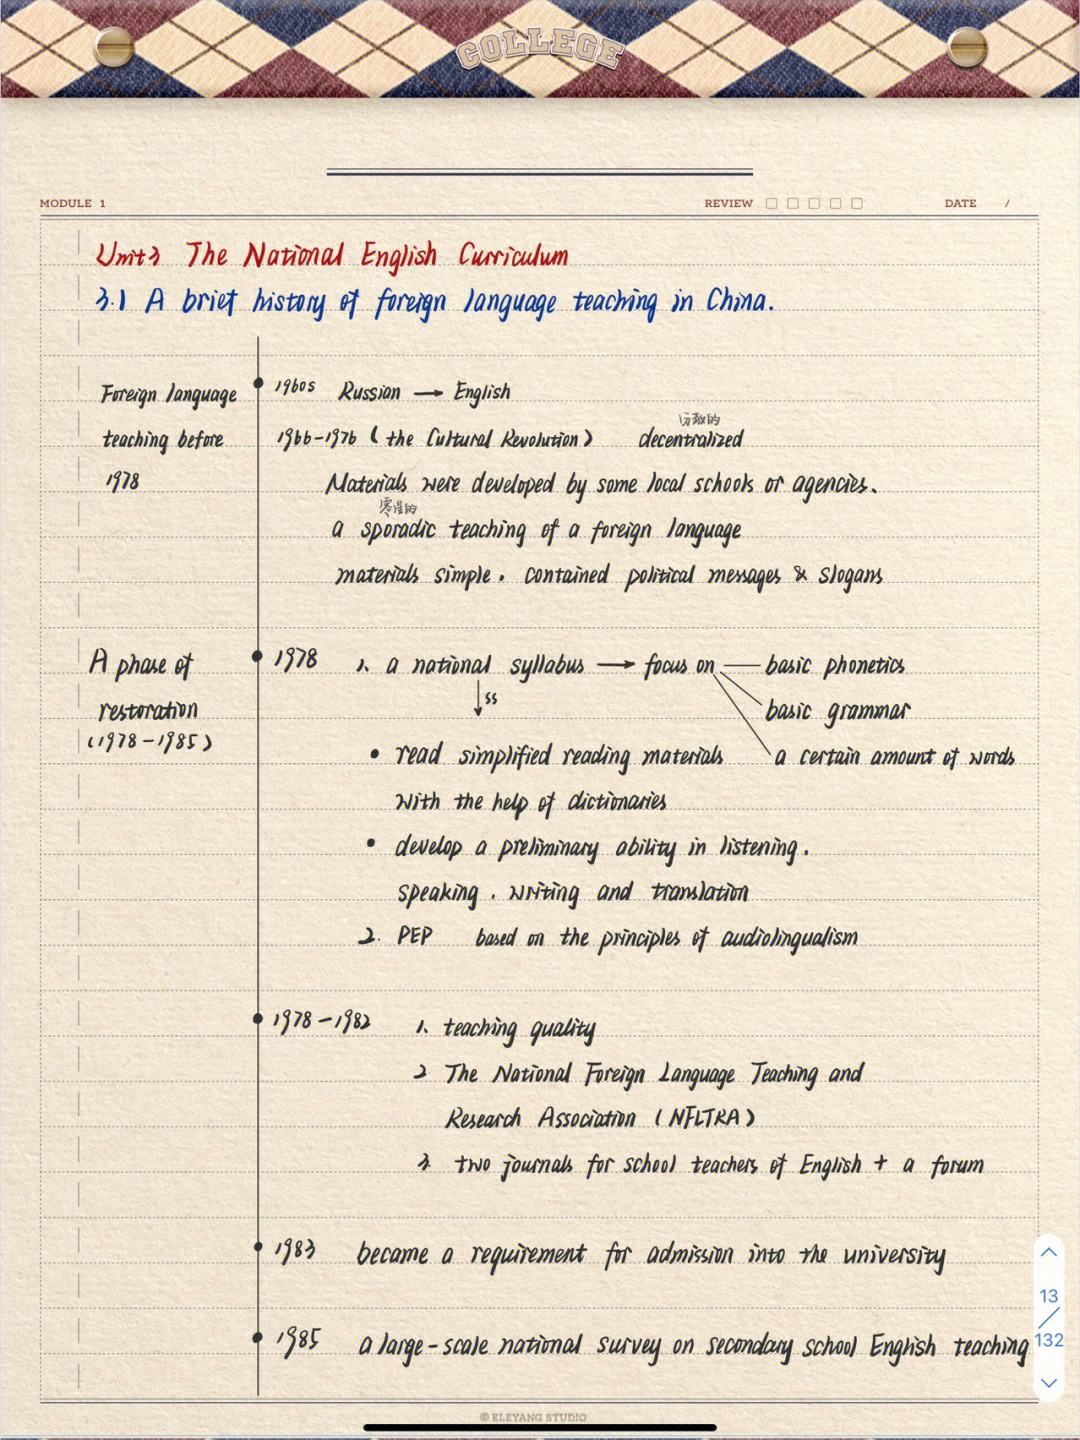 COLLEGE
MODULE 1 REVIEW DATE /
Unit3 The National English Curriculum
3.1 A brief history of foreign language teaching in China.
Foreign language teaching before 1978
1960s Russian → English
1966-1976 ( the Cultural Revolution ) decentralized
分散的
Materials were developed by some local schools or agencies.
零星的
a sporadic teaching of a foreign language
materials simple. contained political messages & slogans
A phase of restoration (1978-1985)
1978 1. a national syllabus → focus on basic phonetics
basic grammar
a certain amount of words
↓ ss
• read simplified reading materials
with the help of dictionaries
• develop a preliminary ability in listening.
speaking. writing and translation
2. PEP based on the principles of audiolingualism
1978-1982 1. teaching quality
2 The National Foreign Language Teaching and
Research Association ( NFLTRA )
3. two journals for school teachers of English + a forum
1983 became a requirement for admission into the university
1985 a large-scale national survey on secondary school English teaching
13/132
© ELEYANG STUDIO